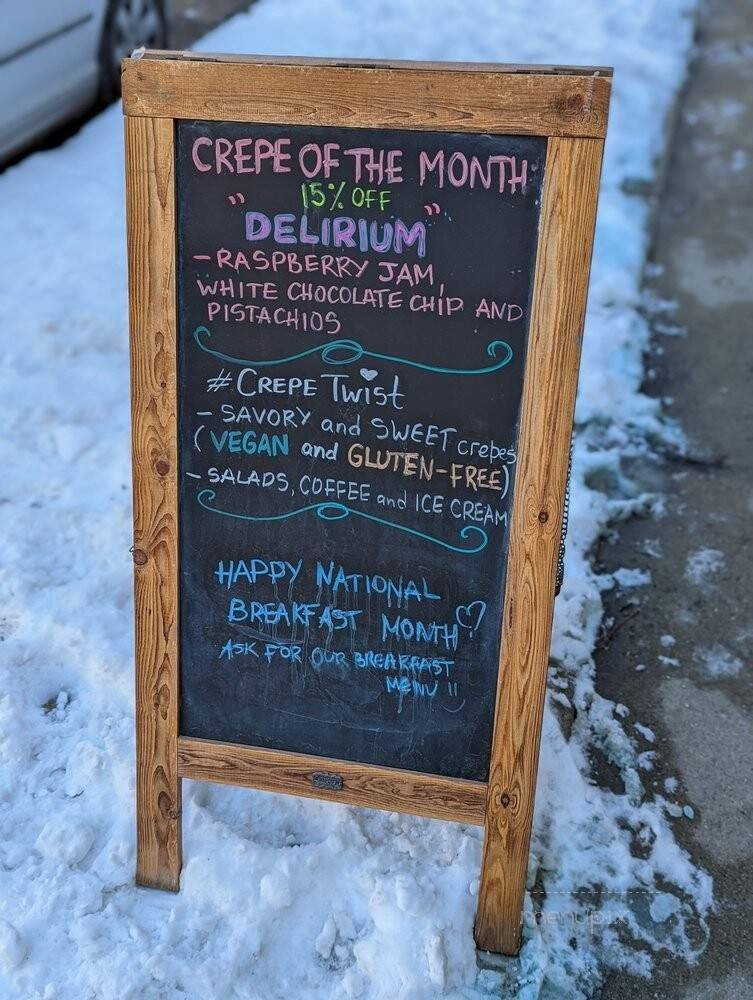 CREPE OF THE MONTH
15% OFF
"DELIRIUM"
- RASPBERRY JAM,
WHITE CHOCOLATE CHIP AND
PISTACHIOS
# CREPE TWIST
- SAVORY and SWEET crepes
(VEGAN and GLUTEN-FREE)
- SALADS, COFFEE and ICE CREAM
HAPPY NATIONAL
BREAKFAST MONTH
ASK FOR OUR BREAKFAST
MENU !!
menupix